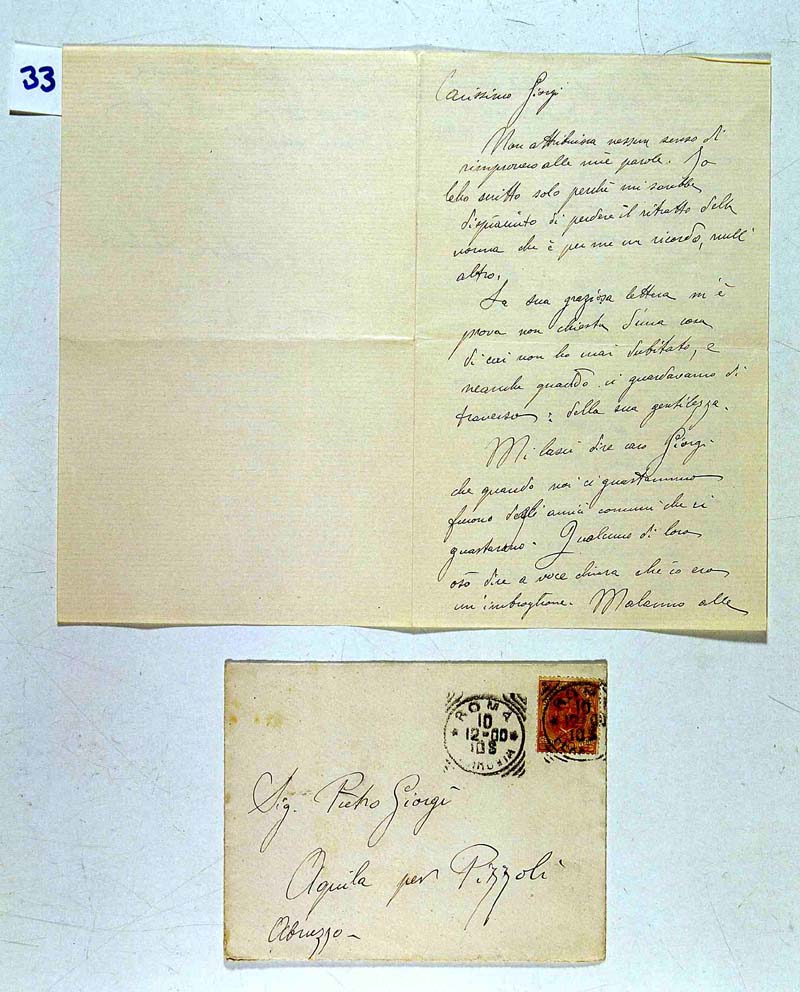 33
Carissimo Giorgi
Non attribuisca nessun senso di
rimprovero alle mie parole. Io
le ho scritto solo perchè mi sarebbe
dispiaciuto di perdere il ritratto della
nonna che è per me un ricordo, null'
altro.
La sua graziosa lettera m'è
prova non chiesta d'una cosa
di cui non ho mai dubitato, e
neanche quando ci guardavamo di
traverso: della sua gentilezza.
Mi lasci dire caro Giorgi
che quando noi ci guastammo
furono degli amici comuni che ci
guastarono. Qualcuno di loro
osò dire a voce chiara che io ero
un'imbroglione. Malanno alle
ROMA
10
12-00
10S
ROMA
10
12-00
10S
Sig. Pietro Giorgi
Aquila per Pizzoli
Abruzzo-